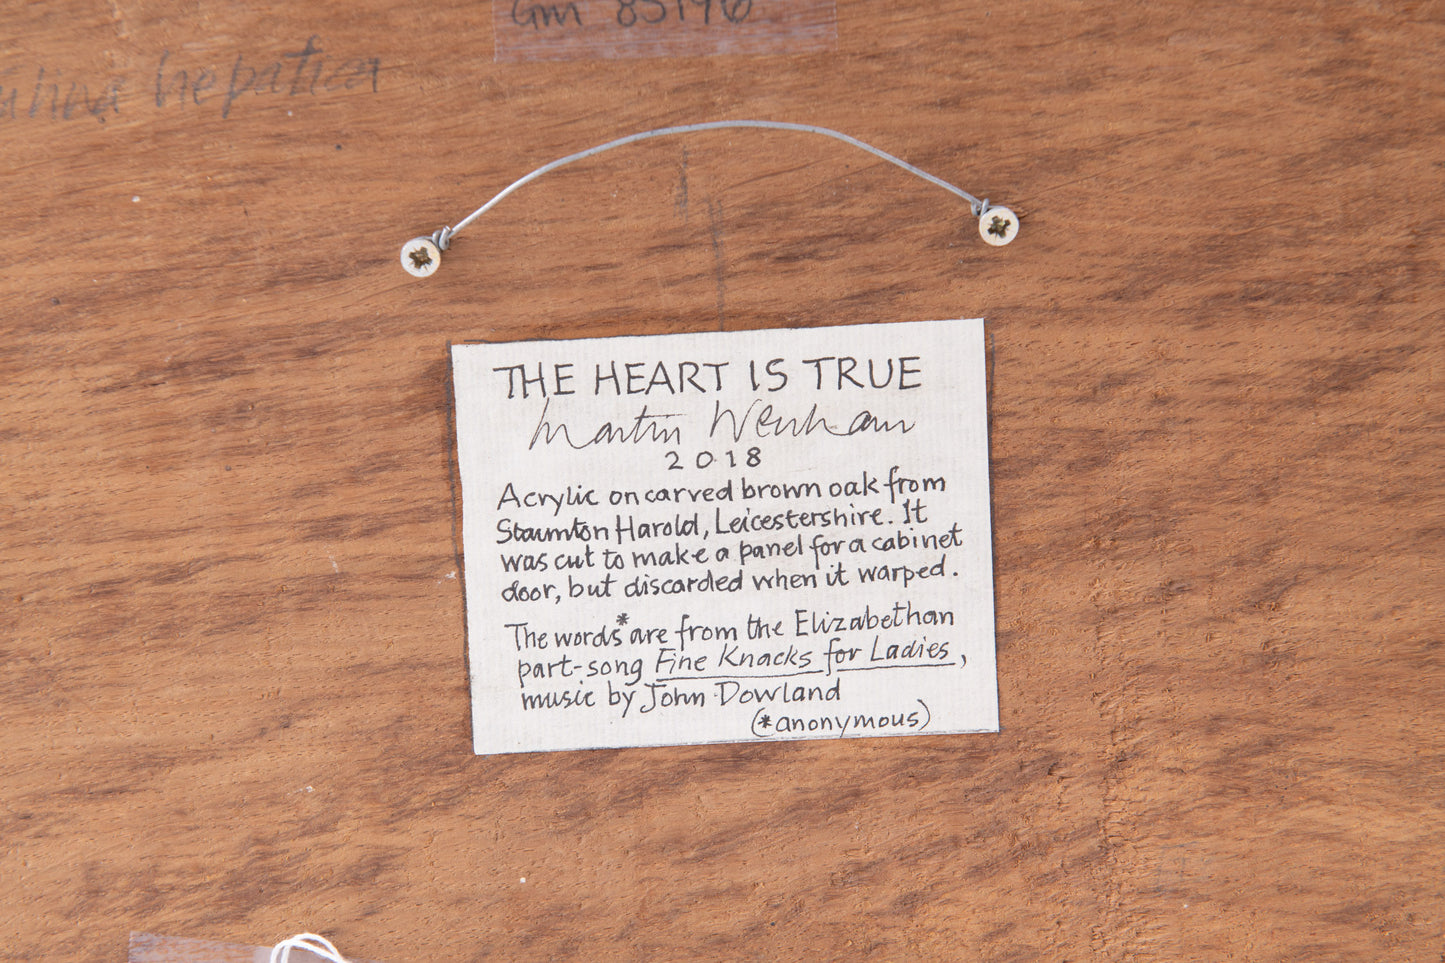 Gm 85196
hepatica
THE HEART IS TRUE
Martin Wenham
2018
Acrylic on carved brown oak from
Staunton Harold, Leicestershire. It
was cut to make a panel for a cabinet
door, but discarded when it warped.
The words* are from the Elizabethan
part-song Fine Knacks for Ladies,
music by John Dowland
(*anonymous)